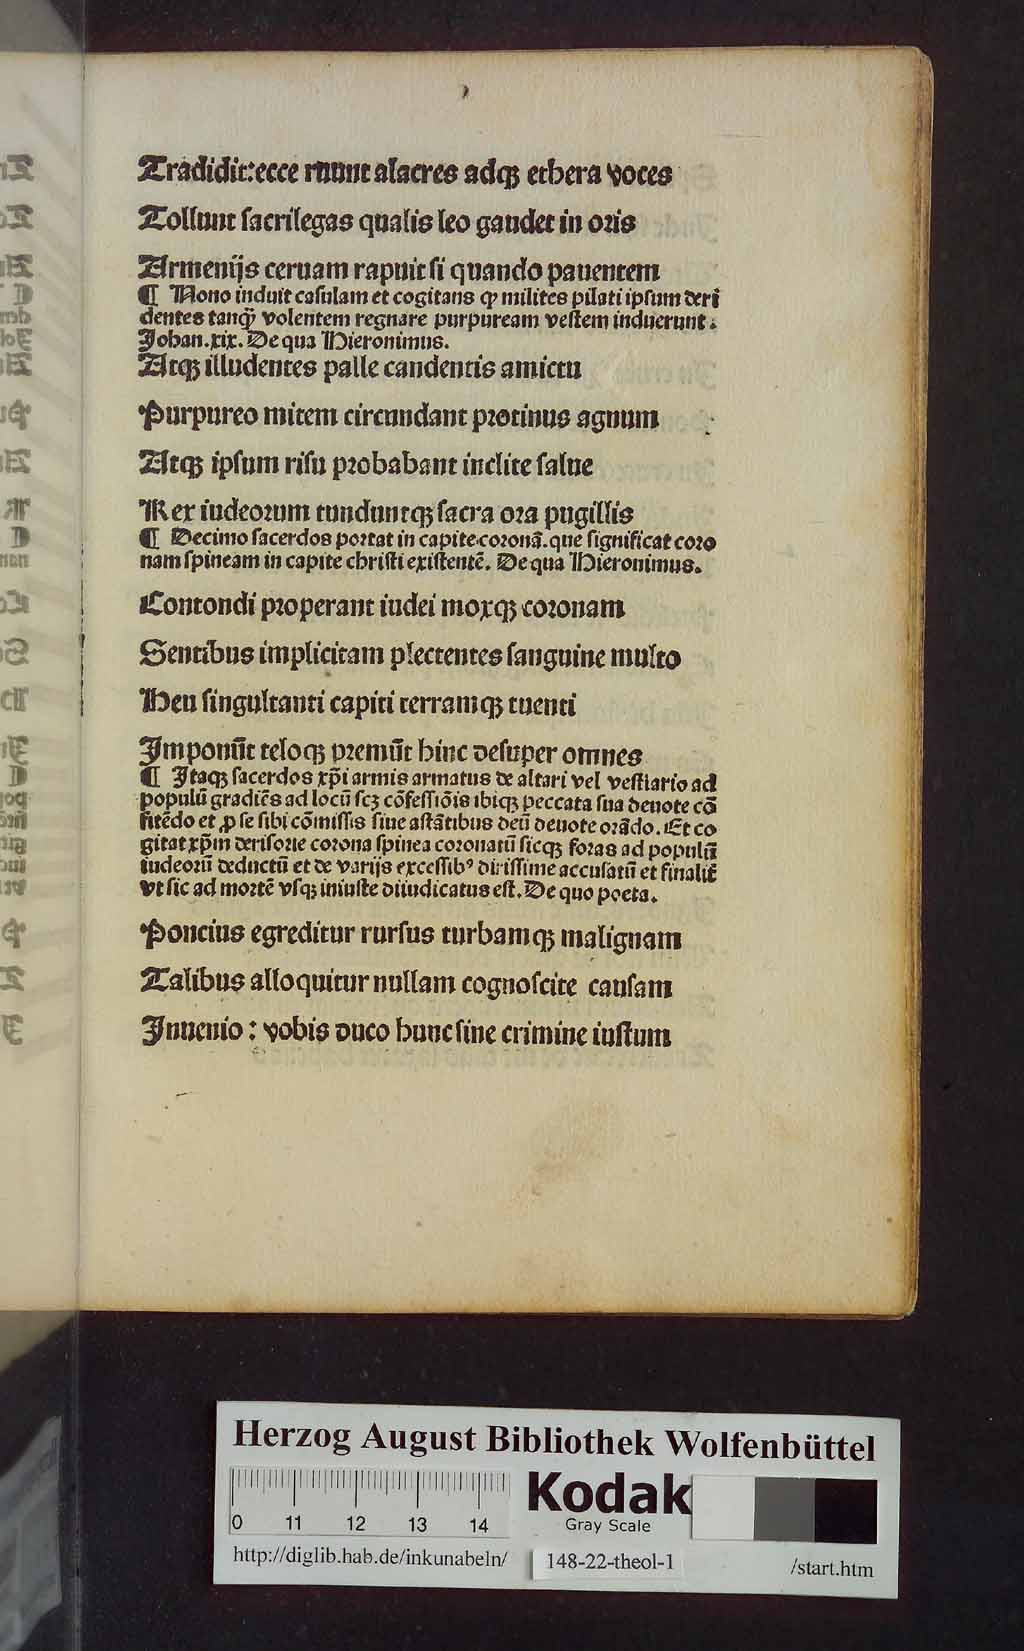 Tradidit: ecce ruunt alacres adqꝫ ethera voces
Tollunt ſacrilegas qualis leo gaudet in oꝛis
Armenijs ceruam rapuit ſi quando pauentem
¶ Nono induit caſulam et cogitans ꝙ milites pilati ipſum deri
dentes tanqꝫ̃ volentem regnare purpuream veſtem induerunt.
Johan.xix. De qua Hieronimus.
Atqꝫ illudentes palle candentis amictu
Purpureo mitem circundant pꝛotinus agnum
Atqꝫ ipſum riſu pꝛobabant inclite ſalue
Rex iudeoꝛum tunduntqꝫ ſacra oꝛa pugillis
¶ Decimo ſacerdos poꝛtat in capite coꝛonã. que ſignificat coꝛo
nam ſpineam in capite chriſti exiſtentẽ. De qua Hieronimus.
Contondi pꝛoperant iudei moxqꝫ coꝛonam
Sentibus implicitam plectentes ſanguine multo
Heu ſingultanti capiti terramqꝫ tuenti
Imponũt teloqꝫ pꝛemũt hinc deſuper omnes
¶ Itaqꝫ ſacerdos xp̃i armis armatus de altari vel veſtiario ad
populũ gradiẽs ad locũ ſcꝫ cõfeſſiõis ibiqꝫ peccata ſua deuote cõ
fitẽdo et ꝓ ſe ſibi cõmiſſis ſiue aſtãtibus deũ deuote oꝛãdo. Et co
gitat xp̃m deriſoꝛie coꝛona ſpinea coꝛonatũ ſicqꝫ foꝛas ad populũ
iudeoꝛũ deductũ et de varijs exceſſibꝰ diriſſime accuſatũ et finalit̃
vt ſic ad moꝛtẽ vſqꝫ iniuſte diiudicatus eſt. De quo poeta.
Poncius egreditur rurſus turbamqꝫ malignam
Talibus alloquitur nullam cognoſcite cauſam
Inuenio: vobis duco hunc ſine crimine iuſtum
Herzog August Bibliothek Wolfenbüttel
0 11 12 13 14
Kodak
Gray Scale
http://diglib.hab.de/inkunabeln/ 148-22-theol-1 /start.htm